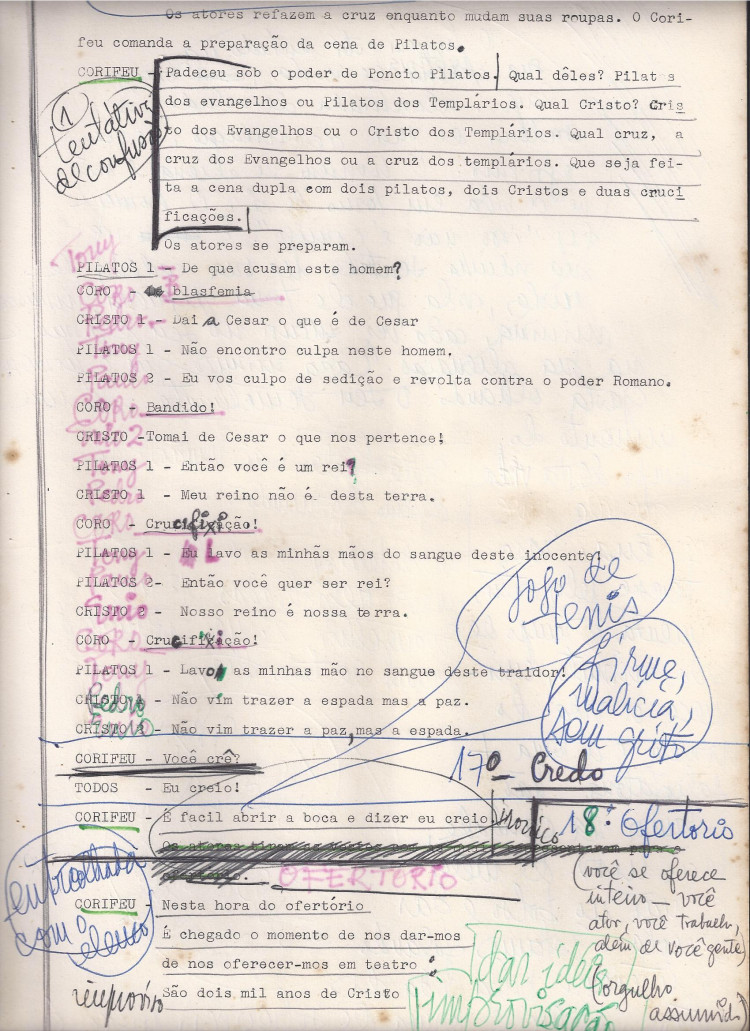 Os atores refazem a cruz enquanto mudam suas roupas. O Cori-
feu comanda a preparação da cena de Pilatos.
CORIFEU - Padeceu sob o poder de Poncio Pilatos. Qual dêles? Pilatos
dos evangelhos ou Pilatos dos Templários. Qual Cristo? Cris
to dos Evangelhos ou o Cristo dos Templários. Qual cruz, a
cruz dos Evangelhos ou a cruz dos templários. Que seja fei-
ta a cena dupla com dois pilatos, dois Cristos e duas cruci
ficações.
1
tentativa
de confusão
Os atores se preparam.
Tony
PILATOS 1 - De que acusam este homem?
CORO - blasfemia
CRISTO 1 - Dai a Cesar o que é de Cesar
PILATOS 1 - Não encontro culpa neste homem.
PILATOS 2 - Eu vos culpo de sedição e revolta contra o poder Romano.
CORO - Bandido!
CRISTO 2 -Tomai de Cesar o que nos pertence!
PILATOS 1 - Então você é um rei?
CRISTO 1 - Meu reino não é desta terra.
CORO - Crucifixação!
PILATOS 1 - Eu Lavo as minhãs mãos do sangue deste inocente!
PILATOS 2- Então você quer ser rei?
CRISTO 2 - Nosso reino é nossa terra.
CORO - Crucifixação!
PILATOS 1 - Lavo as minhas mão no sangue deste traidor!
jogo de
tenis
Pedro
CRISTO 1 - Não vim trazer a espada mas a paz.
Enio
CRISTO 2 - Não vim trazer a paz, mas a espada.
firme,
malícia,
sem grito
CORIFEU - Você crê?
17º - Credo
TODOS - Eu creio!
CORIFEU - É facil abrir a boca e dizer eu creio.
18º Ofertorio
ofertorio. OFERTORIO
(você se oferece
inteiro — você
ator, você trabalho,
além de você gente)
(orgulho
assumido)
com o elenco
CORIFEU - Nesta hora do ofertório
É chegado o momento de nos dar-mos
de nos oferecer-mos em teatro:
São dois mil anos de Cristo
improviso
dar ideia
improvisação